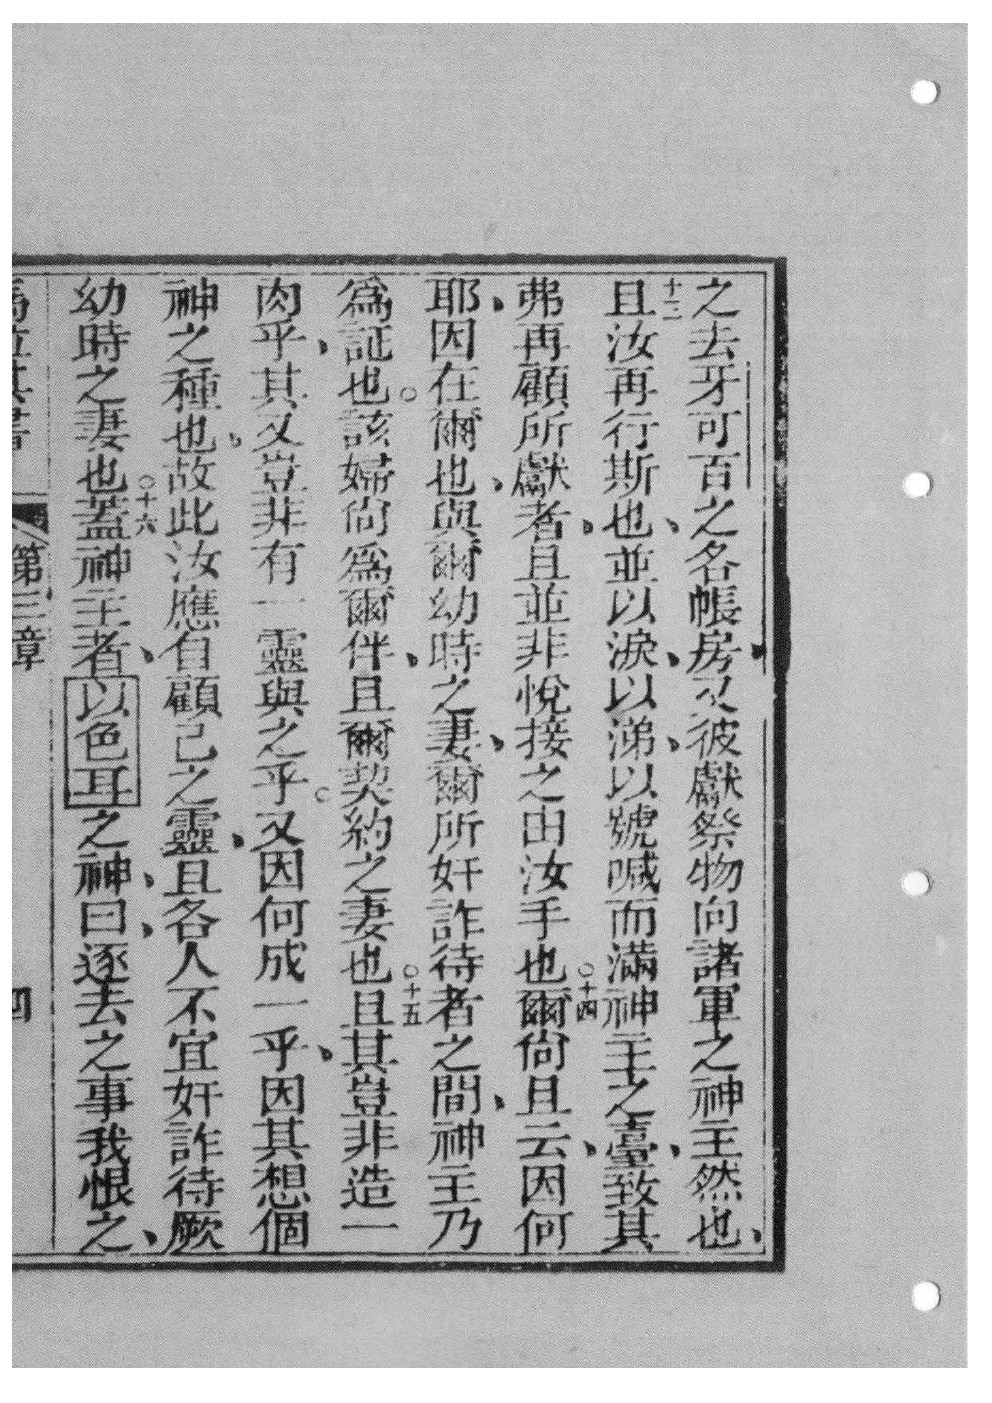 之去牙可百之各帳房又彼獻祭物向諸軍之神主然也、
十三且汝再行斯也、並以淚、以涕、以號喊而滿神主之臺、致其
弗再顧所獻者、且並非悅接之由汝手也○十四爾尙且云、因何
耶、因在爾也、與爾幼時之妻、爾所奸詐待者之間、神主乃
爲証也○該婦尙爲爾伴、且爾契約之妻也○十五且其豈非造一
肉乎、其又豈非有一靈與之乎○又因何成一乎、因其想個
神之種也、故此汝應自顧己之靈、且各人不宜奸詐待厥
幼時之妻也○十六蓋神主者、以色耳之神、曰、逐去之事我恨之、
第三章
四